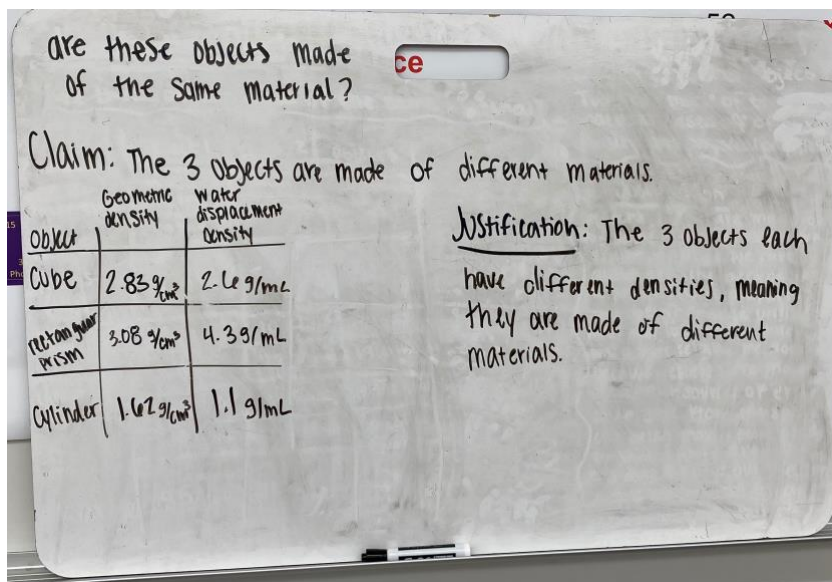 are these objects made
of the same material?
ce
Claim: The 3 objects are made of different materials.
Object | Geometric density | Water displacement density
Cube | 2.83 g/cm³ | 2.6 g/mL
rectangular prism | 3.08 g/cm³ | 4.3 g/mL
Cylinder | 1.62 g/cm³ | 1.1 g/mL
Justification: The 3 objects each
have different densities, meaning
they are made of different
materials.
15
3
Pho